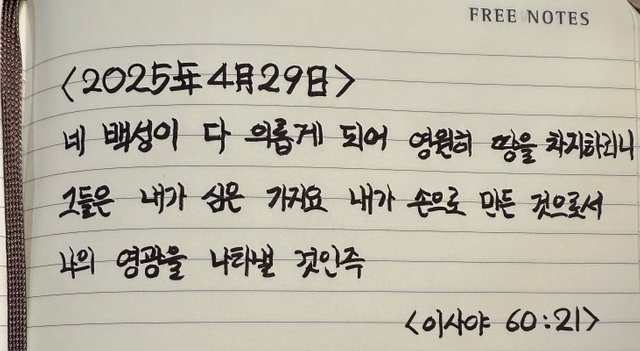 FREE NOTES
<2025年4月29日>
네 백성이 다 의롭게 되어 영원히 땅을 차지하리니
그들은 내가 심은 가지요 내가 손으로 만든 것으로서
나의 영광을 나타낼 것인즉
<이사야 60:21>